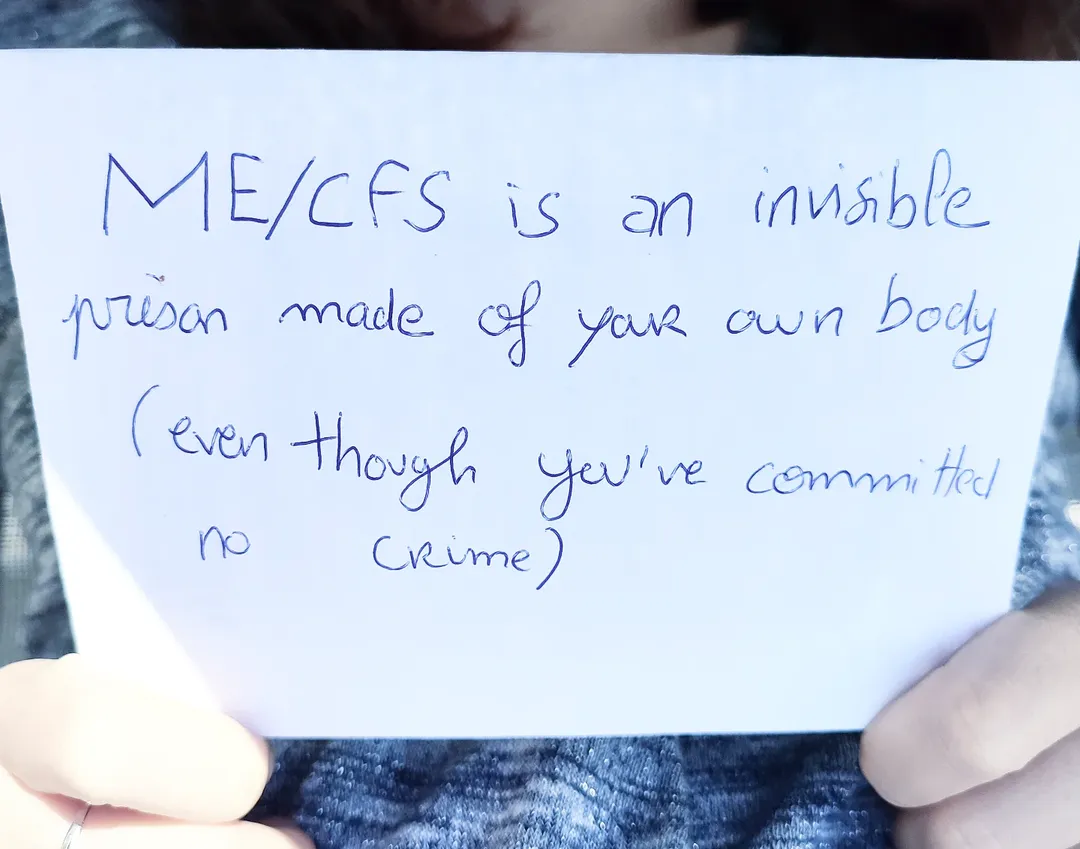 ME/CFS is an invisible
prison made of your own body
(even though you've committed
no crime)